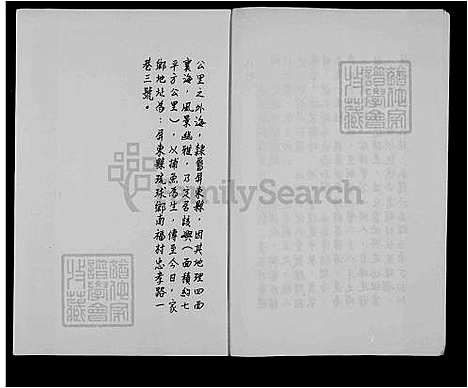 公里之外海，隸屬屏東縣，因其地理四面
實海，風景幽雅，乃定居該嶼（面積約七
平方公里），以捕魚為生，傳至今日，家
鄉地址為：屏東縣琉球鄉南福村忠孝路一
巷三號。
FamilySearch